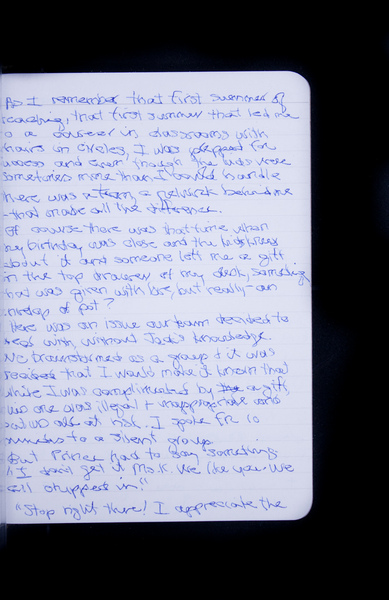 As I remember that first summer of
teaching, that first summer that led me
to a career in classrooms with
chairs in circles, I was prepped for
and even though the kids were
sometimes more than I could handle
there was a team, a network behind me
that made all the difference.
Of course there was that time when
my birthday was close and the kids knew
about it and someone left me a gift
in the top drawer of my desk, something
that was given with love, but really - an
of pot?
Here was an issue our team decided to
with, without Jack's knowledge.
We brainstormed as a group & it was
decided that I would make it known that
while I was complimented by the a gift,
this one was illegal & inappropriate and
put us all at risk. I spoke for 10
minutes to a silent group
But Prince had to say something
"I said get it Ms. K. We like you. We
all chipped in."
"Stop right there! I appreciate the